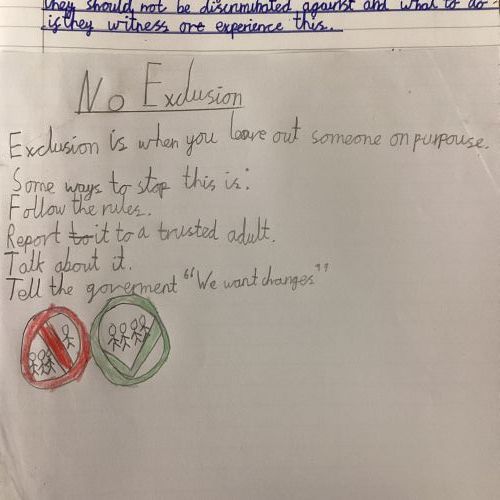 they should not be discriminated against and what to do
is they witness ore experience this..
No Exclusion
Exclusion is when you leave out someone on purpouse.
Some ways to stop this is:
Follow the rules.
Report to it to a trusted adult.
Talk about it.
Tell the goverment "We want changes"